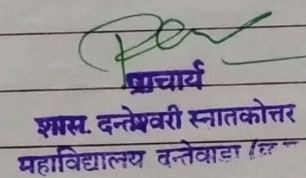 प्राचार्य
शास. दन्तेश्वरी स्नातकोत्तर
महाविद्यालय दन्तेवाडा